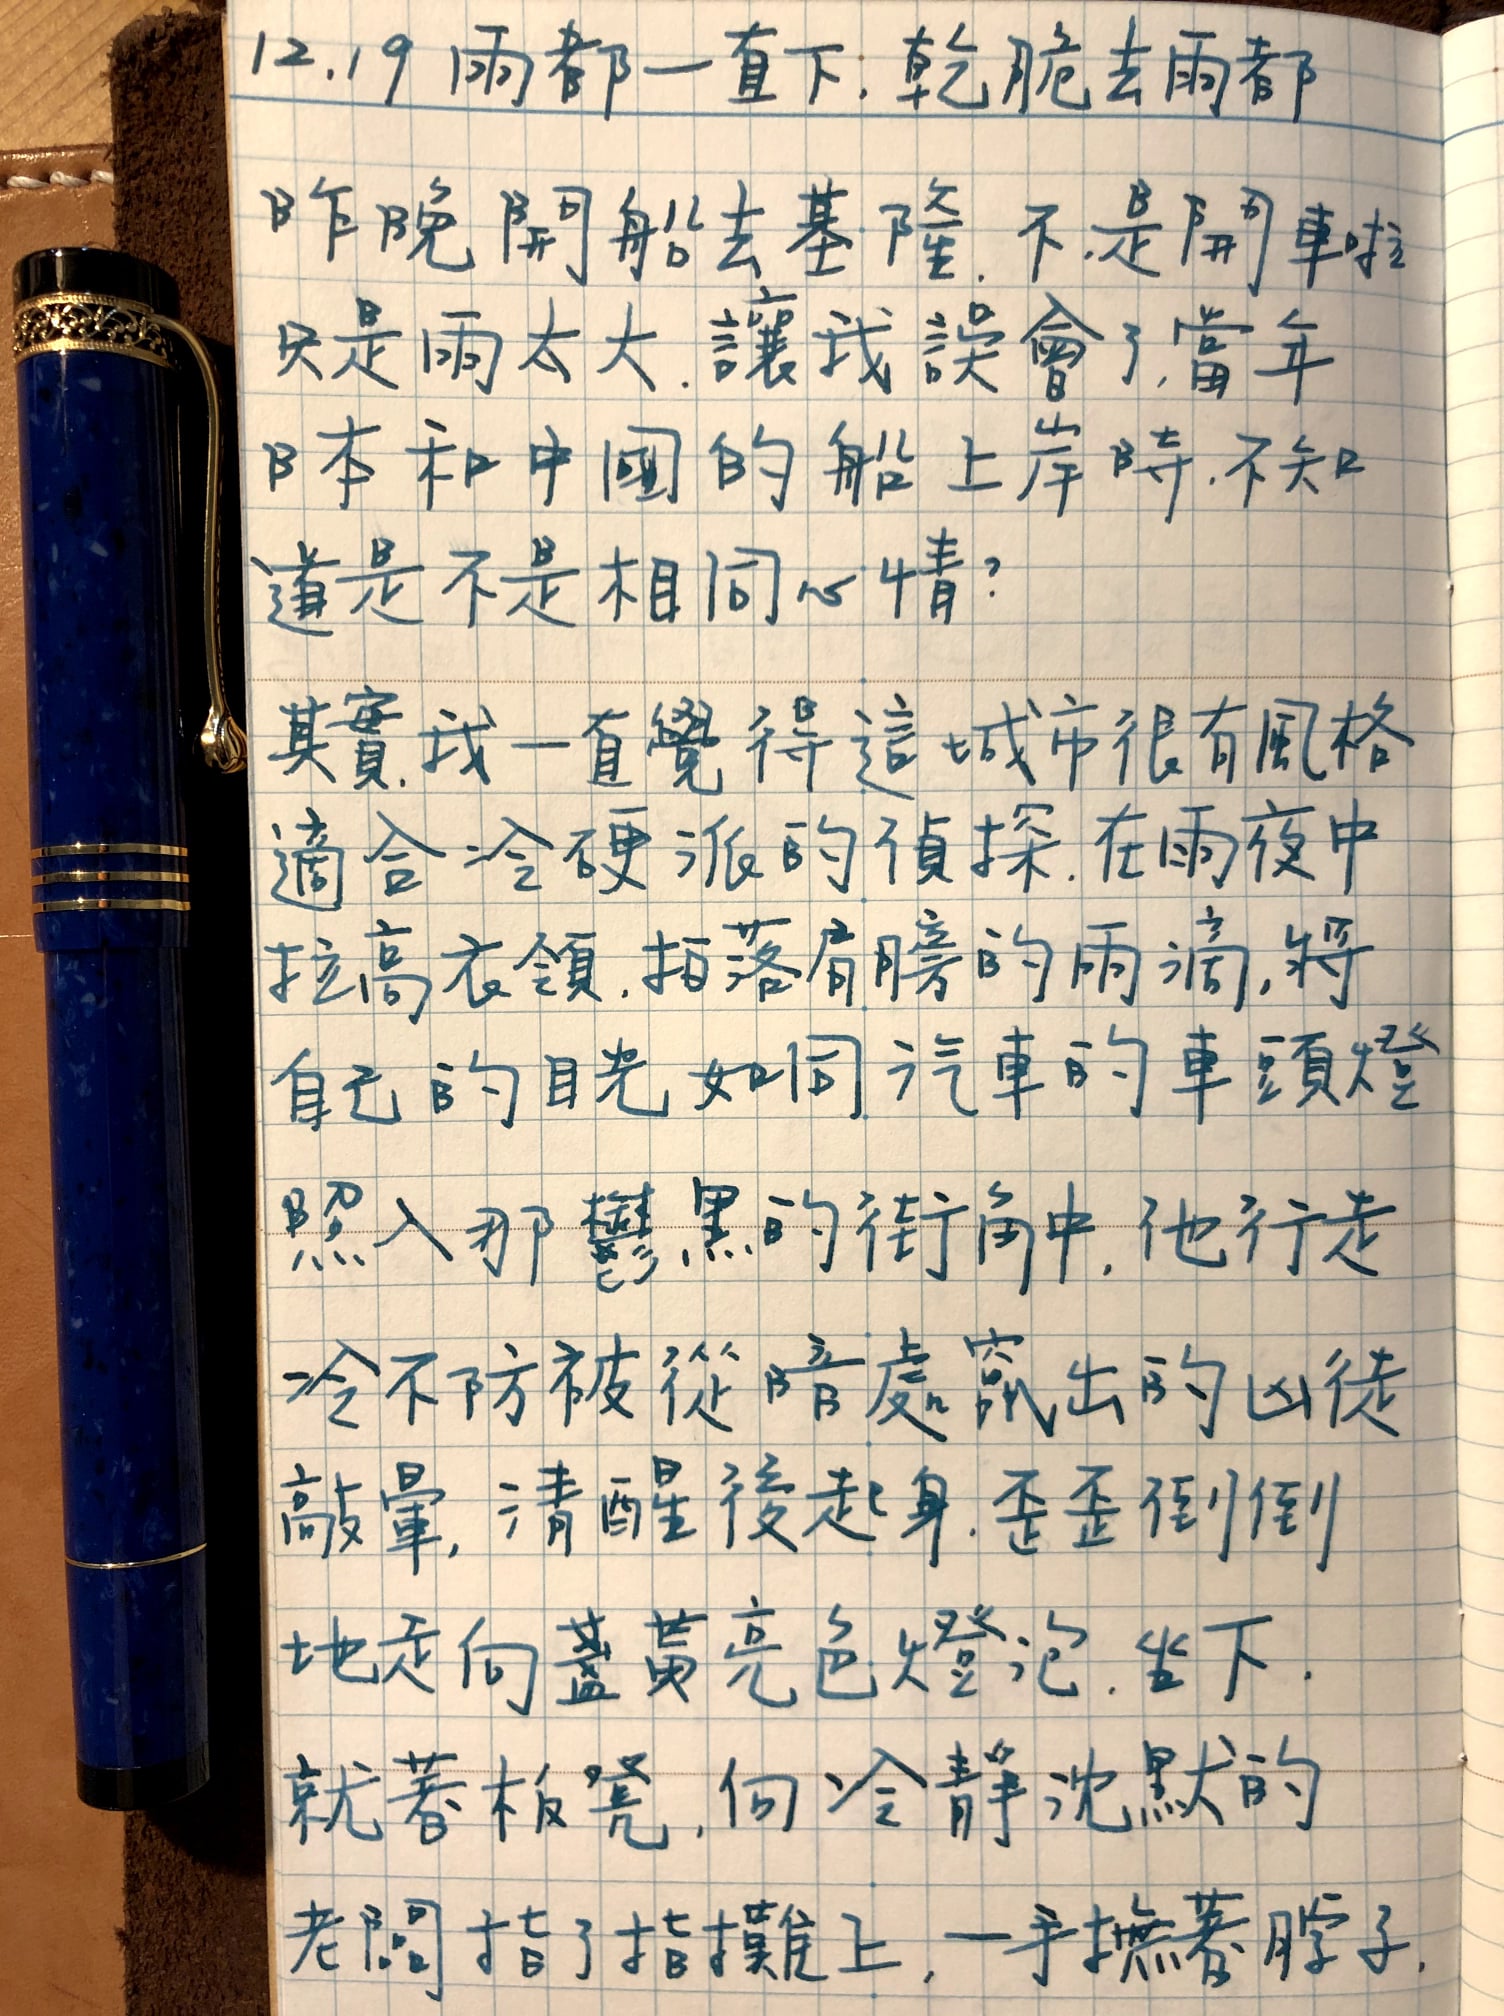 12.19 雨都一直下.乾脆去雨都
昨晚開船去基隆.不是開車啦
只是雨太大.讓我誤會了.當年
日本和中國的船上岸時.不知
道是不是相同心情?
其實.我一直覺得這城市很有風格
適合冷硬派的偵探.在雨夜中
拉高衣領.拍落肩膀的雨滴,將
自己的目光如同汽車的車頭燈
照入那鬱黑的街角中.他行走
冷不防被從暗處竄出的凶徒
敲暈,清醒後起身.歪歪倒倒
地走向盞黃亮色燈泡.坐下.
就著板凳.向冷靜沈默的
老闆指了指攤上,一手撫著脖子,